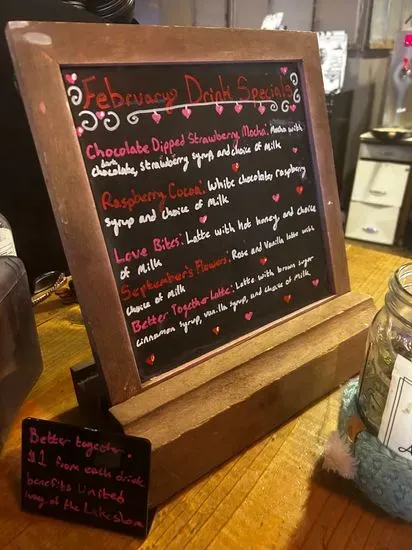 February Drink Specials
Chocolate Dipped Strawberry Mocha: Mocha with
dark
chocolate, strawberry syrup and choice of milk
Raspberry Cocoa: White chocolate, raspberry
syrup and choice of milk
Love Bites: Latte with hot honey and choice
of Milk
September's Flowers: Rose and Vanilla latte with
choice of milk
Better Together Latte: Latte with brown sugar
cinnamon syrup, vanilla syrup, and choice of milk
Better together:
$1 from each drink
benefits United
Way of the Lakeshore